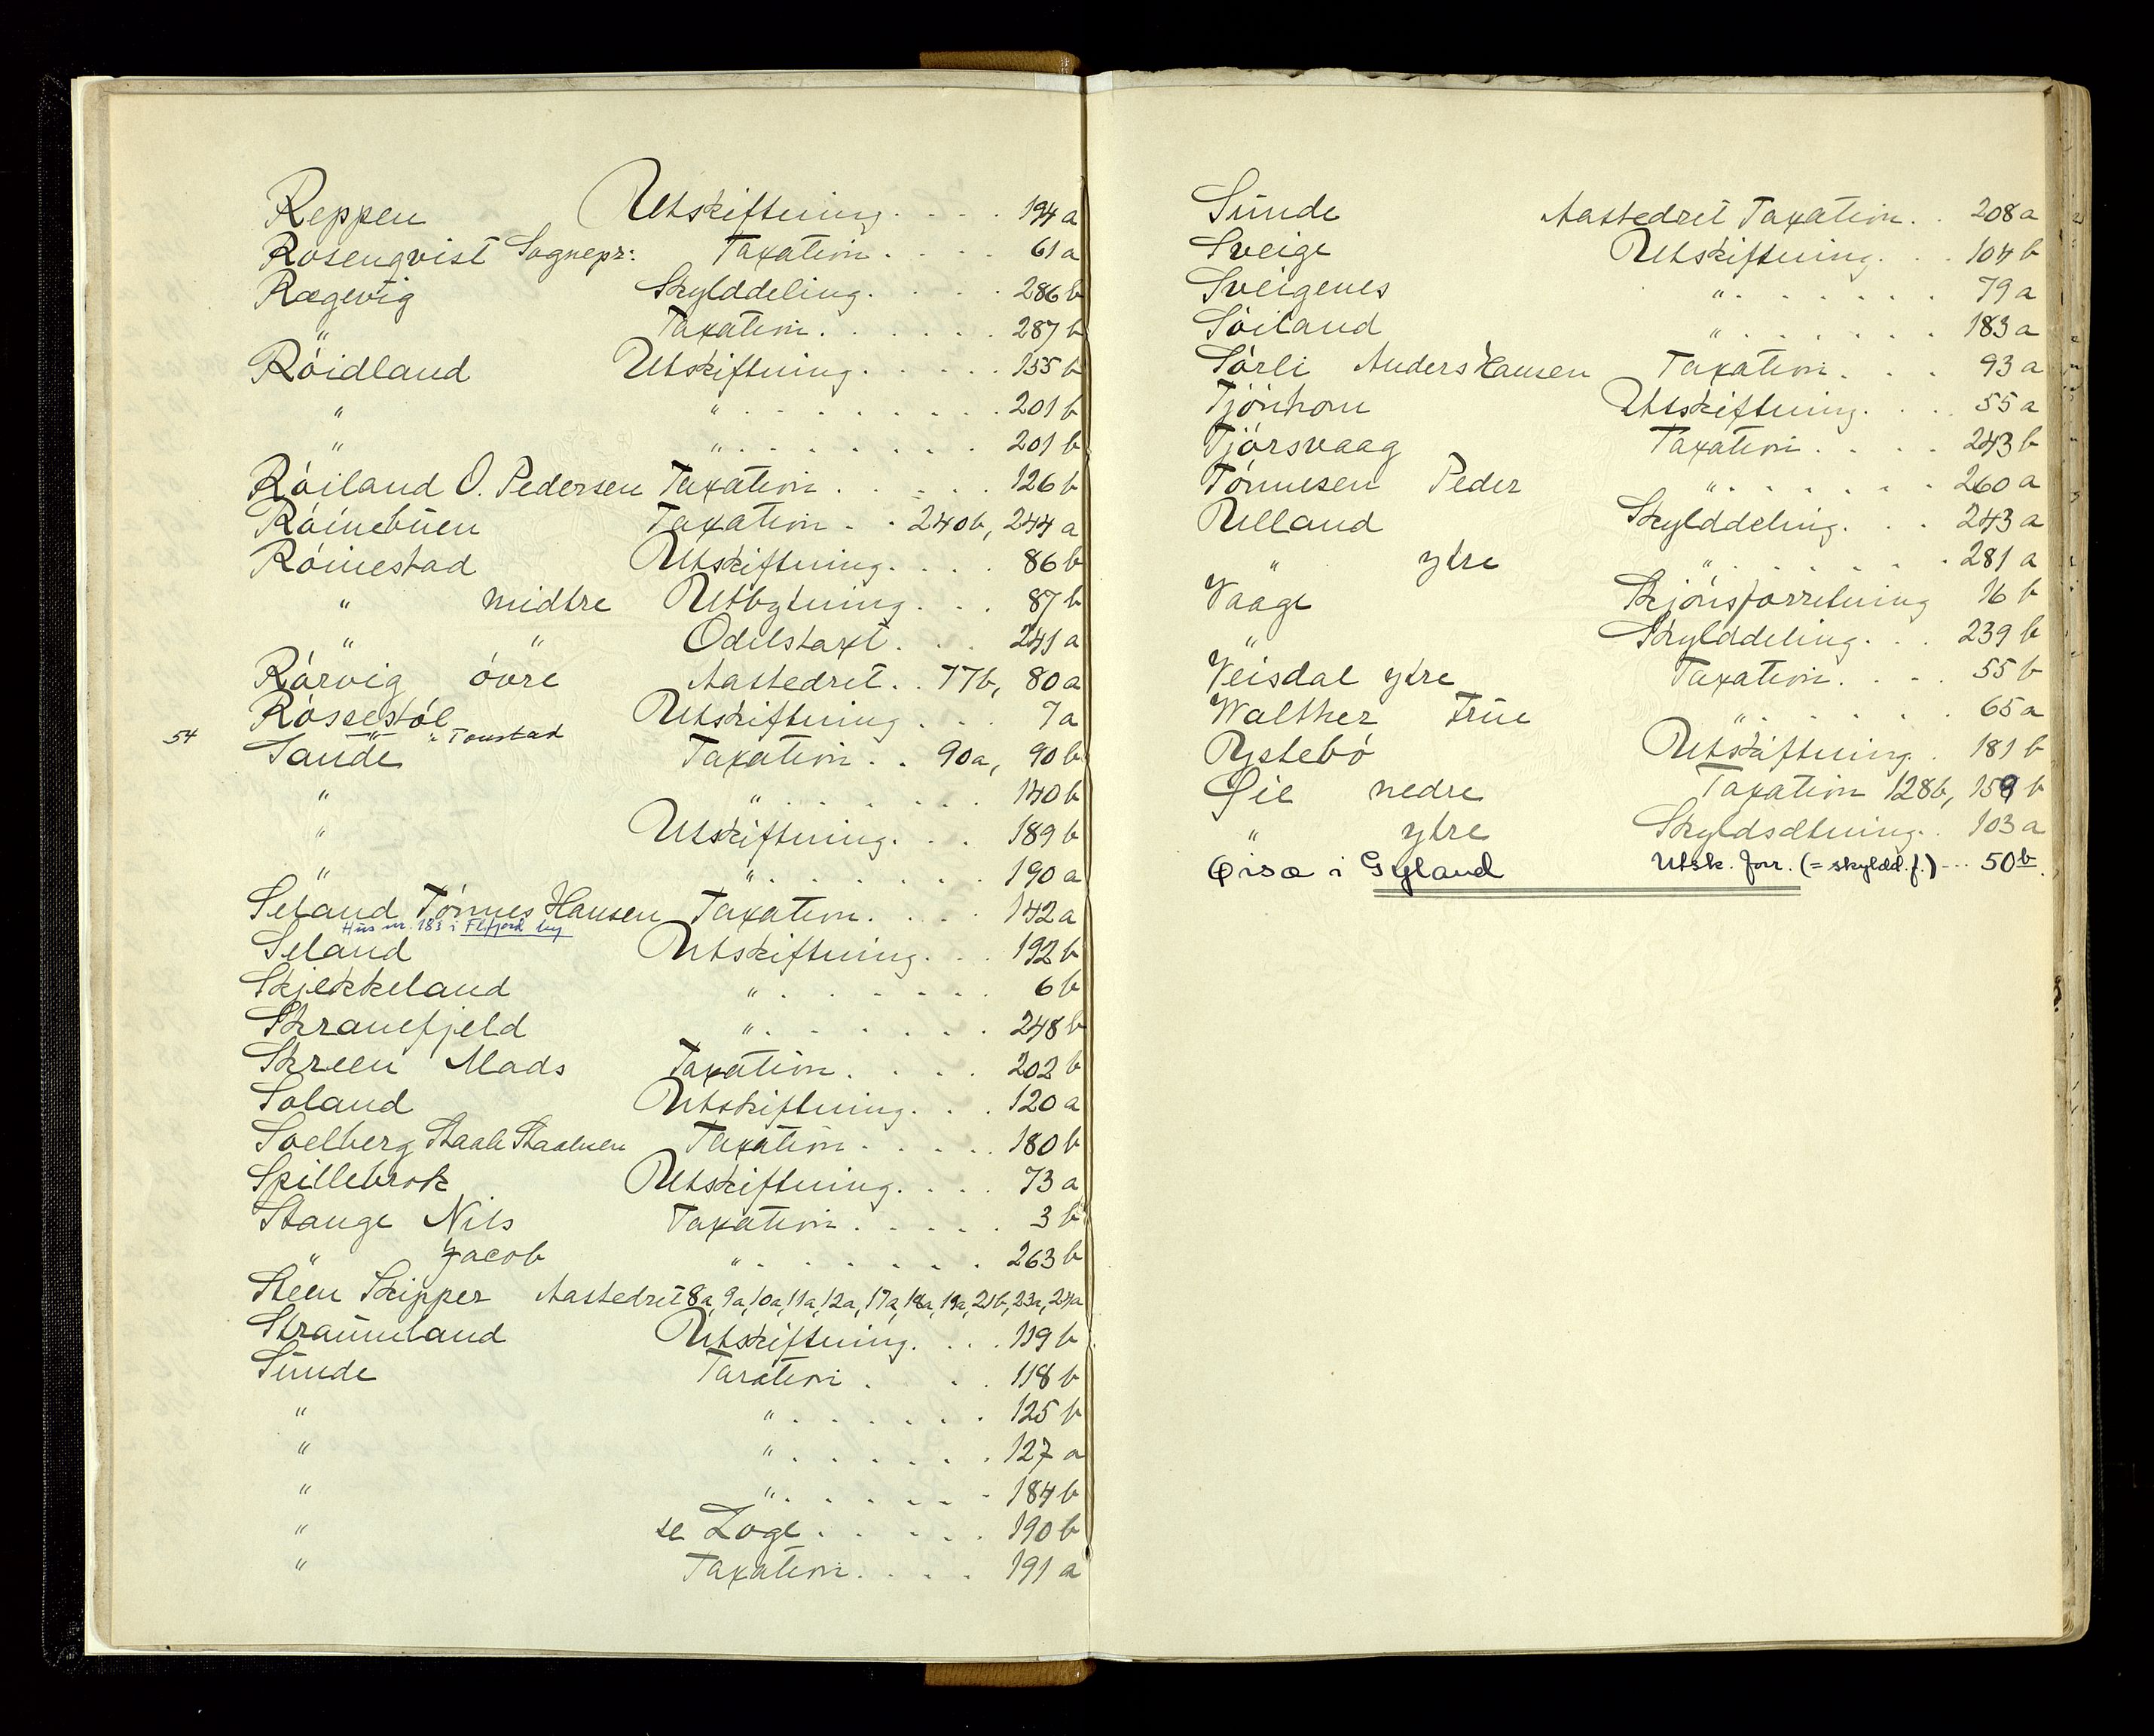 Reppen Utskiftning. . . . 194 a
Rosenqvist Sognepr: Taxation. . . . 61 a
Rægevig Skylddeling. . . . . 286 b
" Taxation. . . . . 287 b
Röidland Utskiftning. . . . . 155 b
" " . . . . . . . . 201 b
" " . . . . . . . 201 b
Röiland O. Pedersen Taxation . . . . . 126 b
Röinebuen Taxation . . 240b, 244 a
Röinestad Utskiftning. . . . 86 b
" midtre Utbytning. . . 87 b
" " Odelstaxt. . . 241 a
Rörvig övre Aastedret. . 77b, 80 a
Rössestöl Utskiftning . . . 7 a
54 " " Tonstad
Sande Taxation . . 90a, 90 b
" " . . . . . . . 140 b
" Utskiftning. . . 189 b
" " . . . . . . . 190 a
Seland Tönnes Hansen Taxation. . . . 142 a
Hus nr. 183 i Flfjord by
Seland Utskiftning. . . 192 b
Skjekkeland " . . . . . . 6 b
Skranefjeld " . . . . . . 248 b
Skreen Mads Taxation . . . . 202 b
Soland Utskiftning. . . 120 a
Soelberg Staale Taxation . . . . . 180 b
Spillebrok Utskiftning. . . . 73 a
Stange Nils Taxation . . . . . 3 b
" Jacob " . . . . . . . 263 b
Steen Skipper Aastedret 8a, 9a, 10a, 11a, 12a, 17a, 18a, 19a, 21b, 23a, 24a
Straumland Utskiftning. . . . 119 b
Sunde Taxation . . . 118 b
" " . . . . . . 125 b
" " . . . . . . 127 a
" " . . . . . . 184 b
" se Loge . . . . . 190 b
" Taxation. . . . 191 a
Sunde Aastedret Taxation. . 208 a
Sveige Utskiftning. . . 104 b
Sveigenes " . . . . . . 79 a
Söiland " . . . . . . . 183 a
Sörli Anders Hansen Taxation. . . 93 a
Tjönhom Utskiftning. . . . 55 a
Tjörsvaag Taxation . . . . 243 b
Tönnesen Peder " . . . . . . 260 a
Ulland Skylddeling. . . 243 a
" ytre " . . . . . . . 281 a
Vaage Skjönsforretning 16 b
" Skylddeling. . . 239 b
Veisdal ytre Taxation. . . . 55 b
Walther Frue " . . . . . . 65 a
Ystebö Utskiftning. . 181 b
Øie nedre Taxation 128b, 159 b
" ytre Skyldsætning. . 103 a
Øisæ i Gyland Utsk. forr. (= skyldd. f.) ... 50 b.